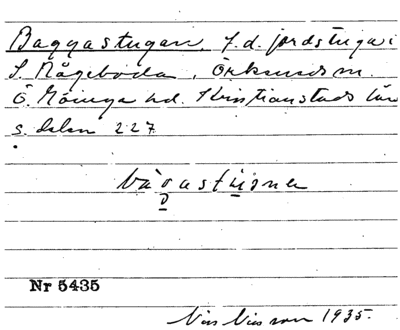 Baggastugan, f.d. jordstuga i
S. Rågeboda, Örkeneds sn.
Ö. Göinge hd. Kristianstads län
s. delen 227
Nr 5435
Nils Nilsson 1935.